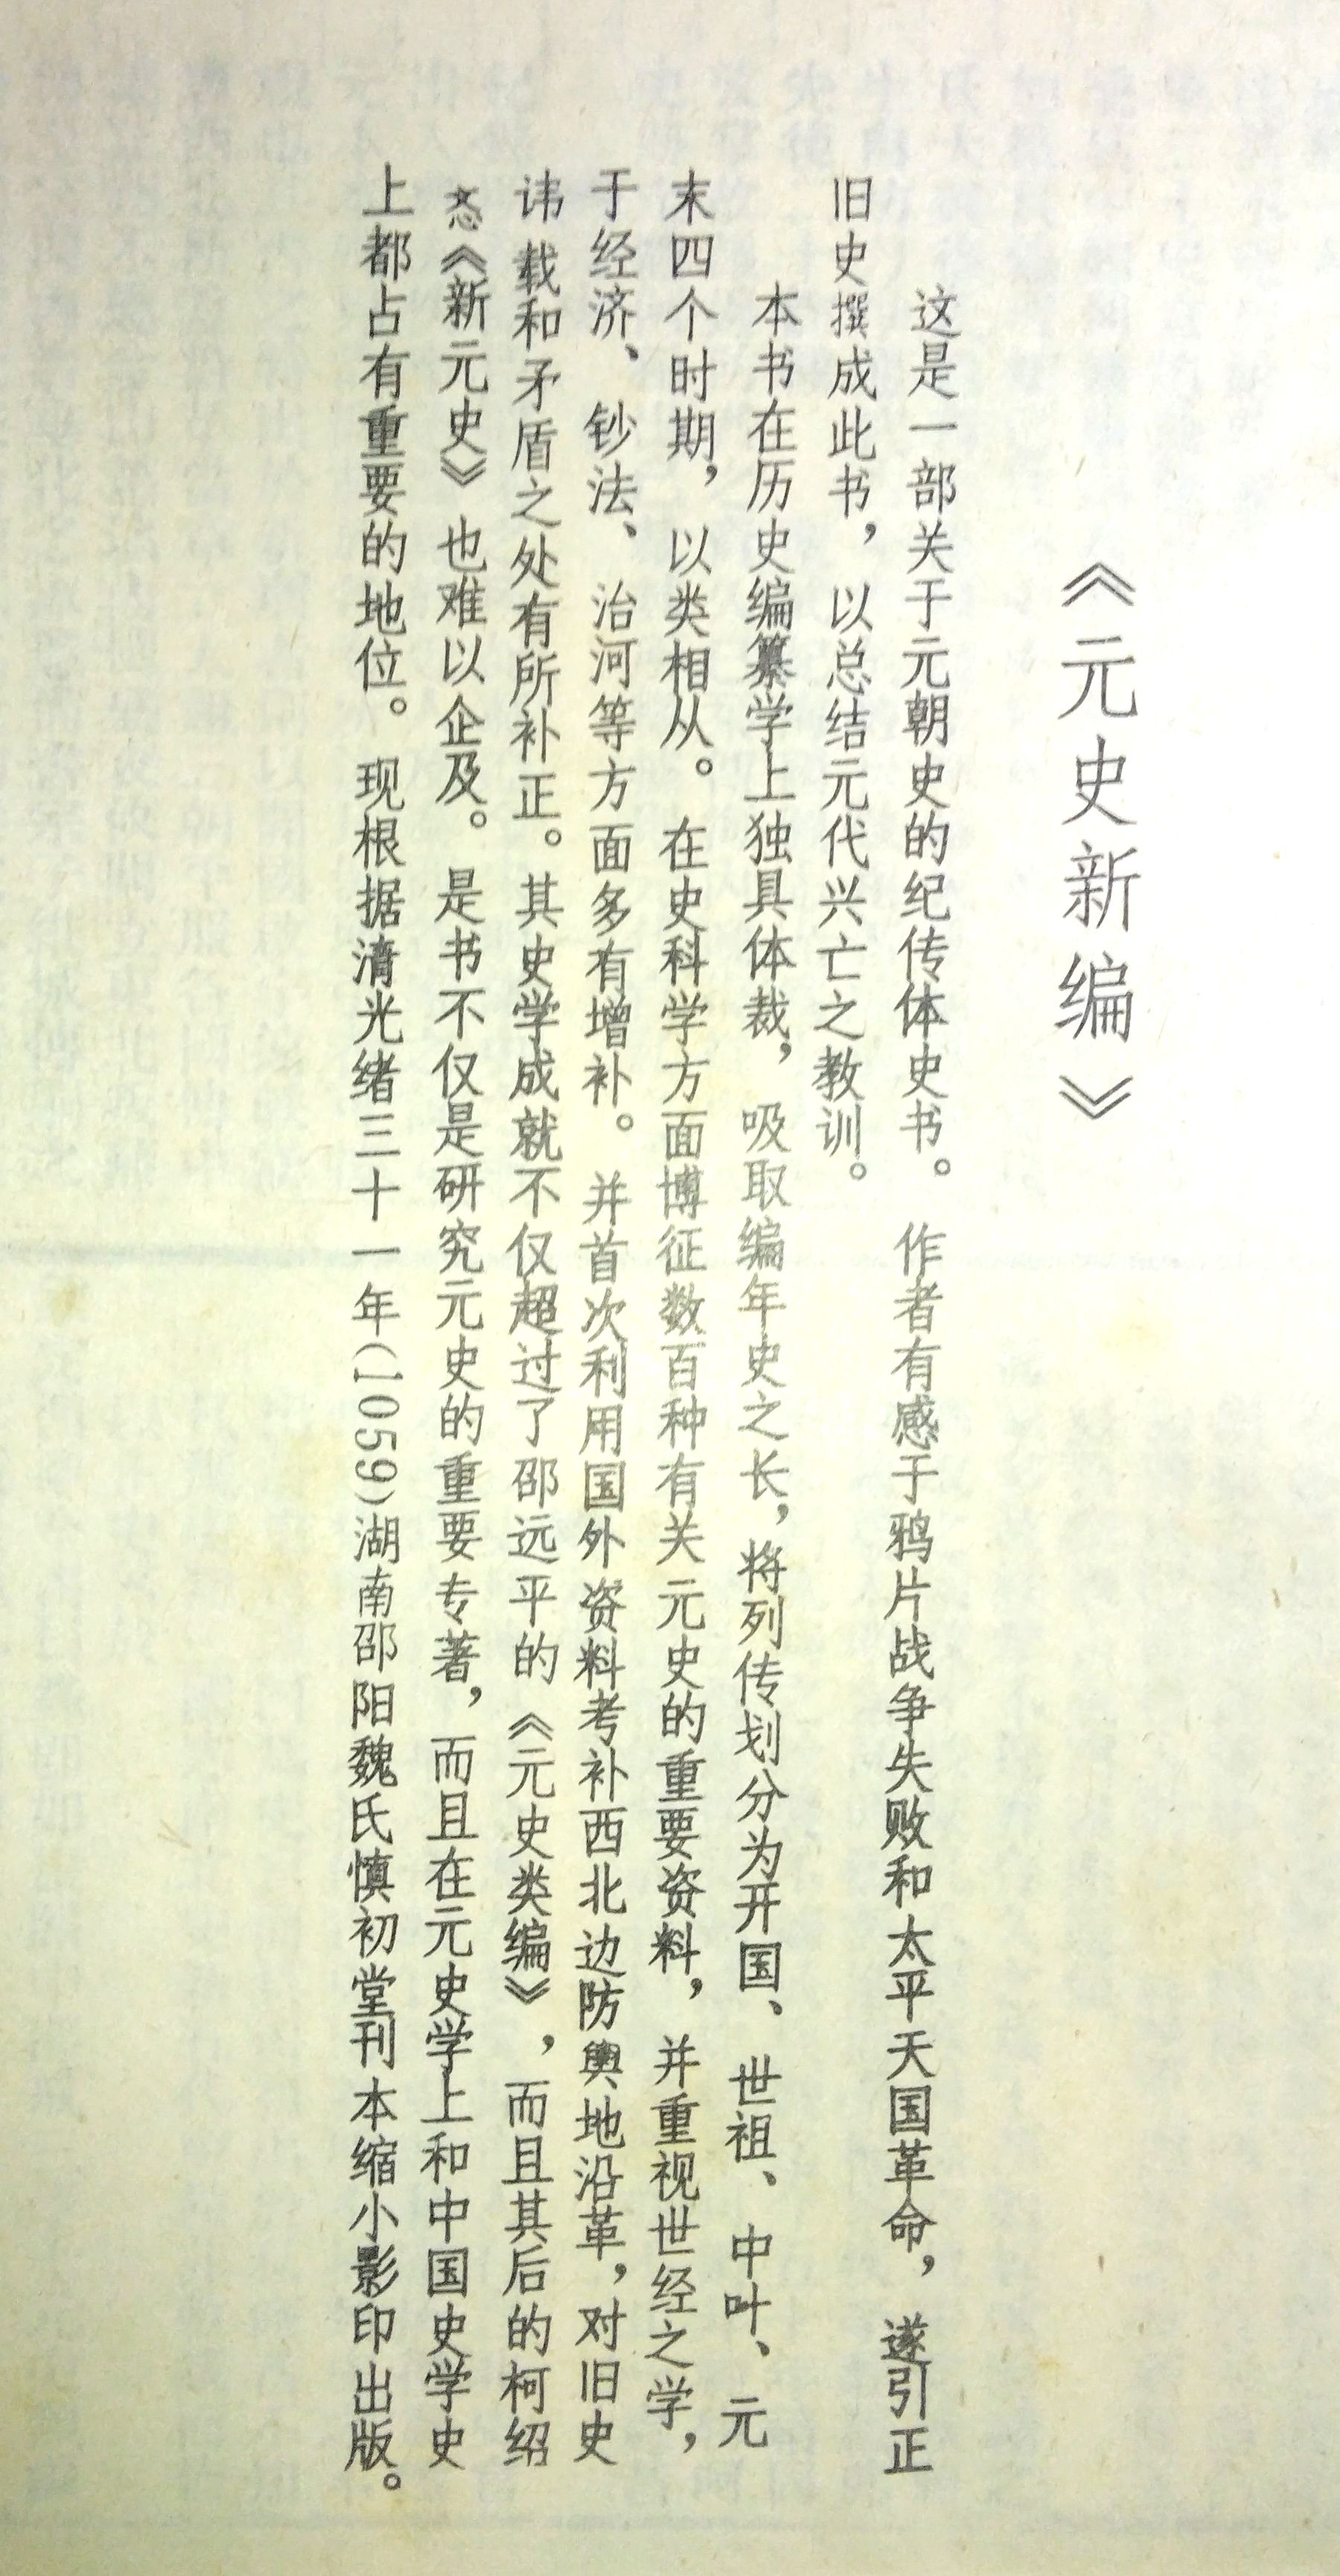 《元史新编》
这是一部关于元朝史的纪传体史书。作者有感于鸦片战争失败和太平天国革命，遂引正
旧史撰成此书，以总结元代兴亡之教训。
本书在历史编纂学上独具体裁，吸取编年史之长，将列传划分为开国、世祖、中叶、元
末四个时期，以类相从。在史科学方面博征数百种有关元史的重要资料，并重视世经之学，
于经济、钞法、治河等方面多有增补。并首次利用国外资料考补西北边防舆地沿革，对旧史
讳载和矛盾之处有所补正。其史学成就不仅超过了邵远平的《元史类编》，而且其后的柯绍
忞《新元史》也难以企及。是书不仅是研究元史的重要专著，而且在元史学上和中国史学史
上都占有重要的地位。现根据清光绪三十一年(1059)湖南邵阳魏氏慎初堂刊本缩小影印出版。